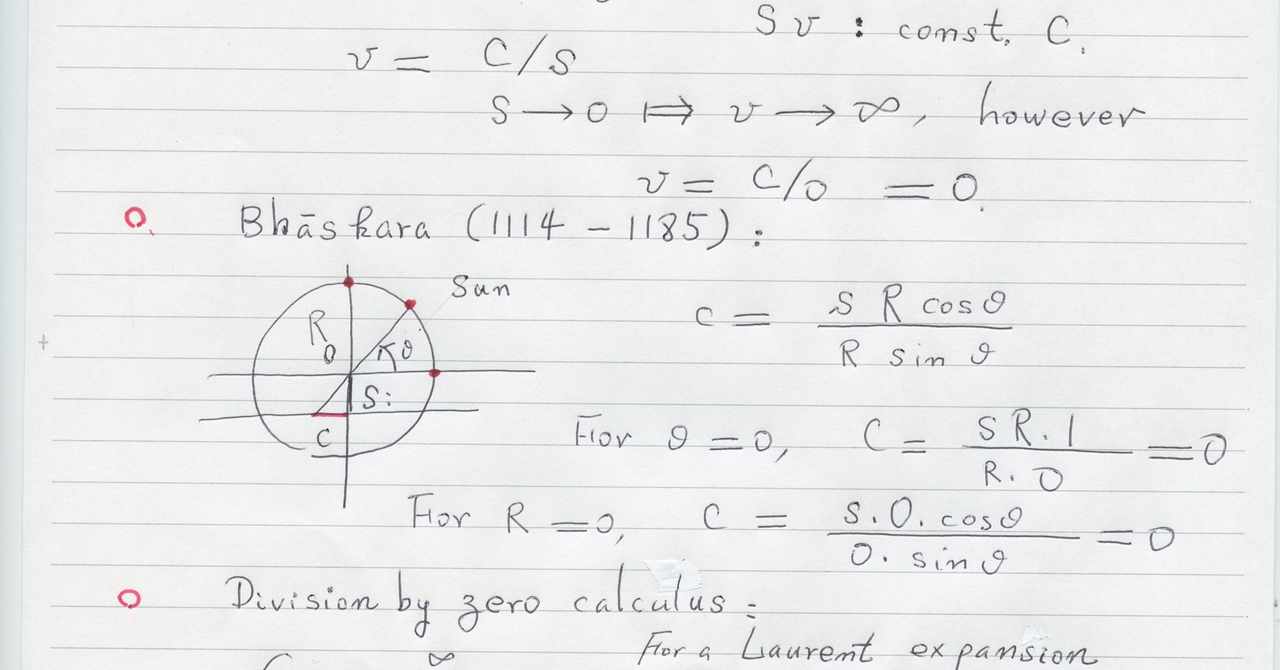 S v : const. C.
v = C/S
S → 0 ⟼ v → ∞, however
v = C/0 = 0.
○. Bhāskara (1114 – 1185) :
Sun
R
0
θ
S :
C
C = S R cos θ / R sin θ
For θ = 0, C = S R. 1 / R. 0 = 0
For R = 0, C = S. 0. cos θ / 0. sin θ = 0
○ Division by zero calculus :
For a Laurent expansion
∞